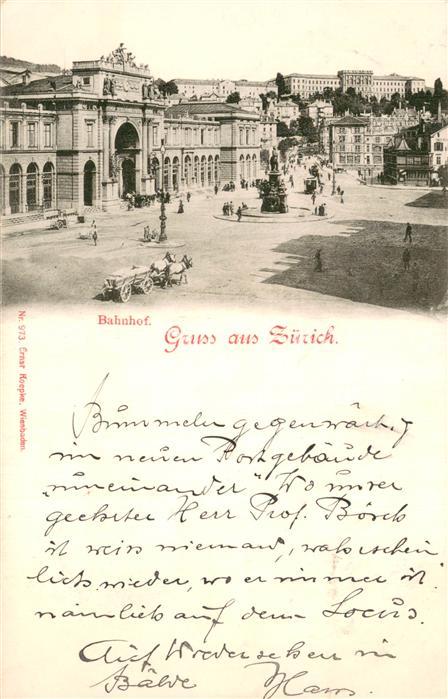 Bahnhof.
Gruss aus Zürich.
Nr. 973. Ernst Koepke, Wiesbaden.
Bummeln gegenwärtig
im neuen Postgebäude
"umeinander" Wo unser
geehrter Herr Prof. Börsch
ist weiss niemand, wahrschein
lich wieder, wo er immer ist
nämlich auf dem Locus.
Auf Wiedersehen in
Bälde Hans.